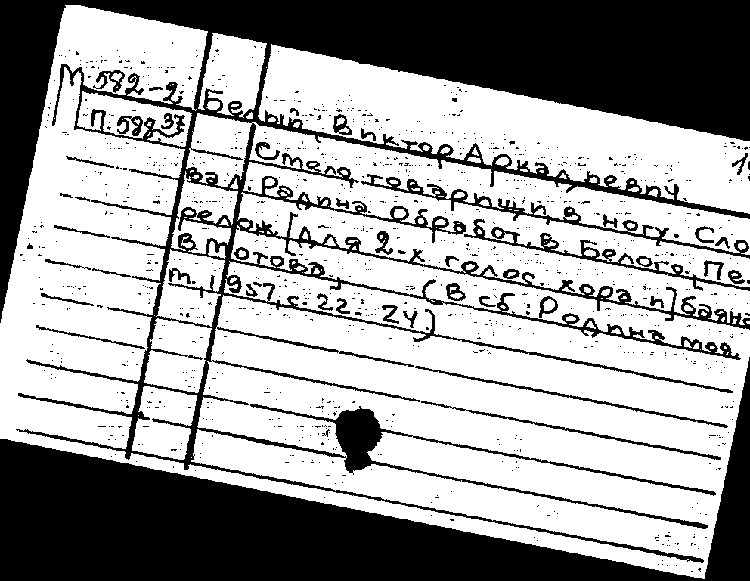 М.582-2 Белый, Виктор Аркадьевич.
П.588.37 Смело, товарищи, в ногу. Сло
ва Л. Радина. Обработ. В. Белого. Пе
релож. [для 2-х голос. хора и] баяна
В. Мотова. (В сб: Родина моя.
М., 1957, с. 22-24)